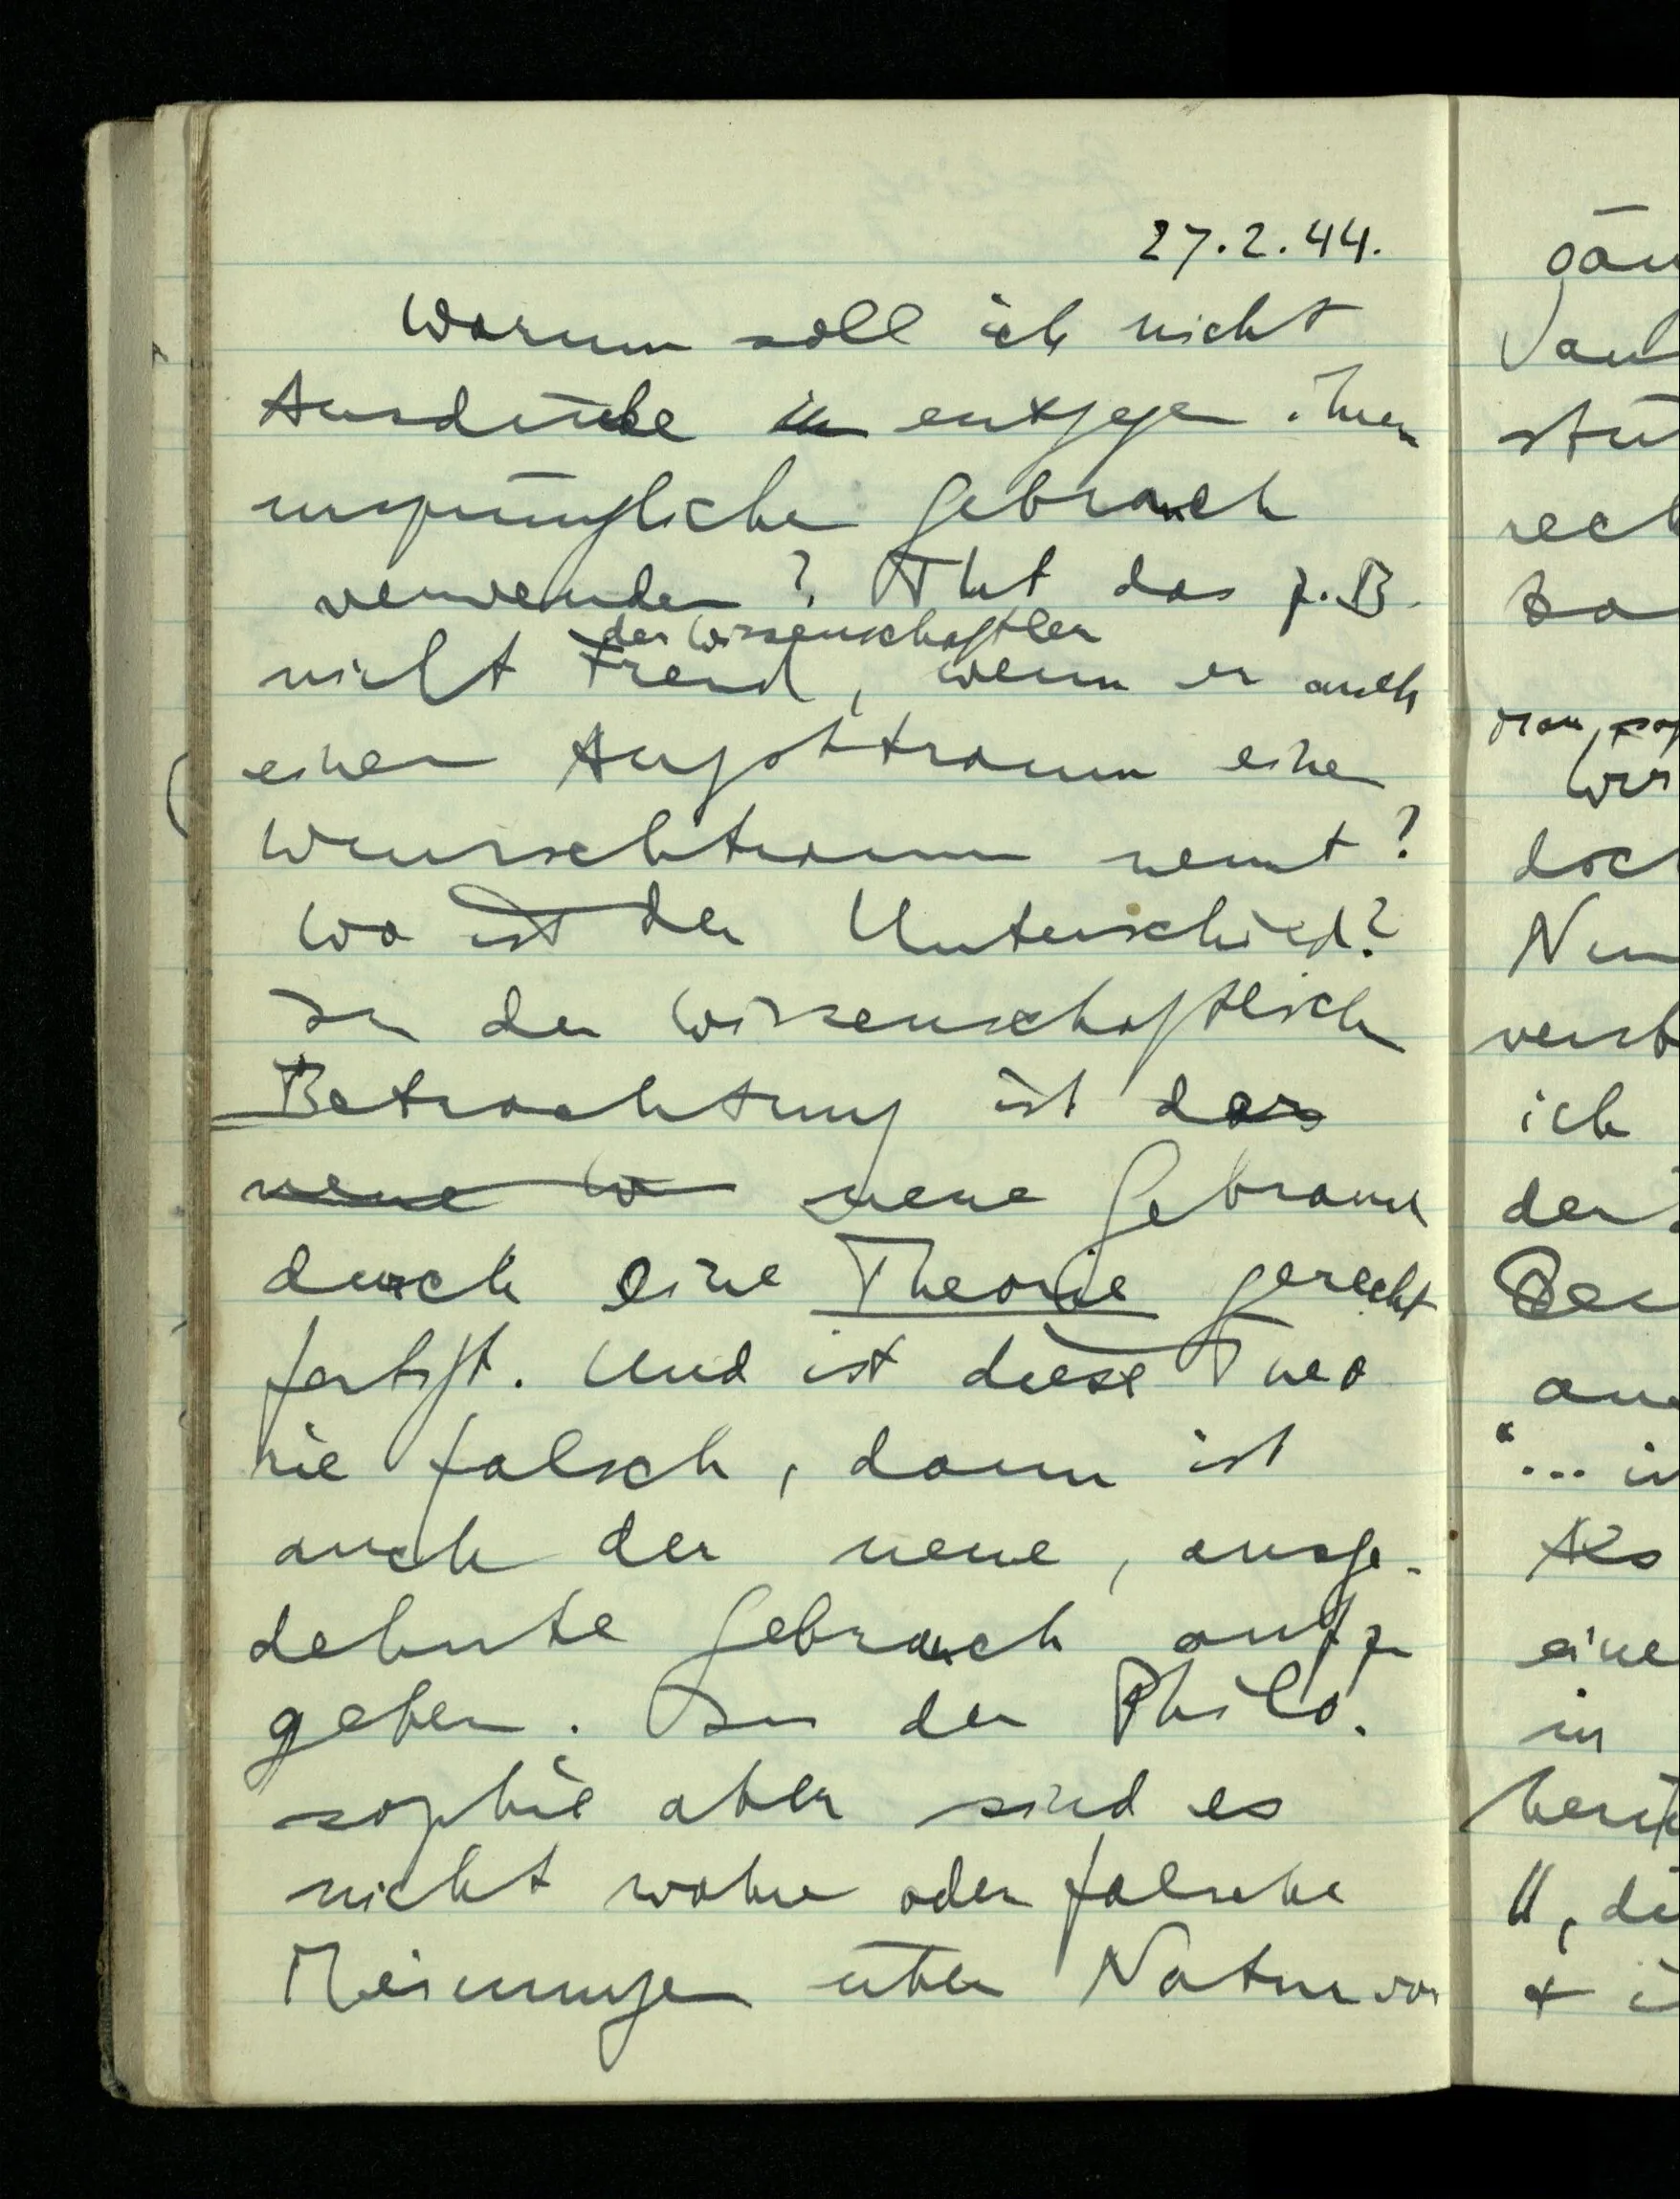 27.2.44.
Warum soll ich nicht
Ausdrücke in entgegen ihrem
ursprünglichen Gebrauch
verwenden? Tut das z.B.
der Wissenschaftler
nicht Freud, wenn er auch
einen Angsttraum einen
Wunschtraum nennt?
Wo ist der Unterschied?
In der wissenschaftlichen
Betrachtung ist das
neue W neue Gebrauch
durch eine Theorie gerecht
fertigt. Und ist diese Theo
rie falsch, dann ist
auch der neue, ausge-
dehnte Gebrauch aufzu
geben. In der Philo-
sophie aber sind es
nicht wahre oder falsche
Meinungen über Naturvor